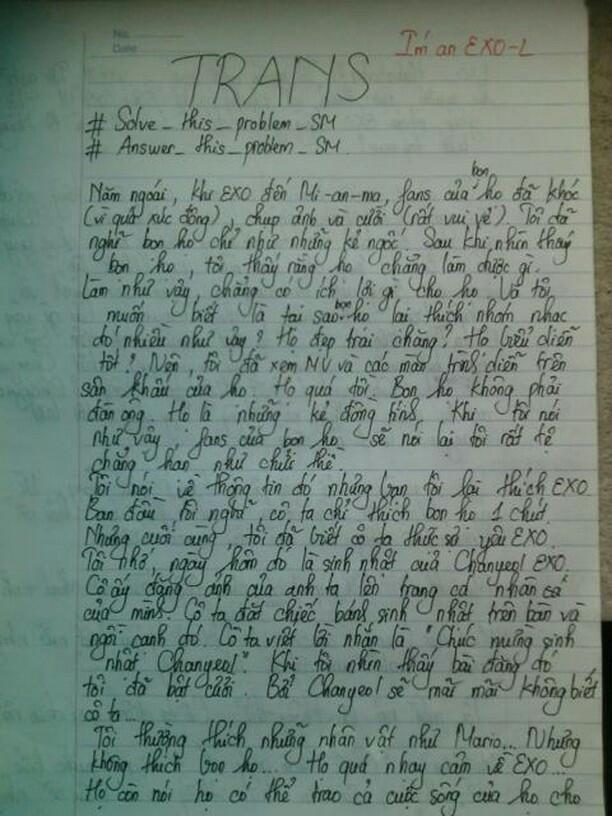 No.
Date
I'm an EXO-L
TRANS
# Solve_this_problem_SM
# Answer_this_problem_SM.
bọn
Năm ngoái, khi EXO đến Mi-an-ma, fans của họ đã khóc
(vì quá xúc động), chụp ảnh và cười (rất vui vẻ). Tôi đã
nghĩ bọn họ chỉ như những kẻ ngốc. Sau khi nhìn thấy
bọn họ, tôi thấy rằng họ chẳng làm được gì.
Làm như vậy, chẳng có ích lợi gì cho họ. Và tôi
muốn biết là tại sao bọn họ lại thích nhóm nhạc
đó nhiều như vậy? Họ đẹp trai chăng? Họ biểu diễn
tốt? Nên, tôi đã xem MV và các màn trình diễn trên
sân khấu của họ. Họ quá tồi. Bọn họ không phải
đàn ông. Họ là những kẻ đồng tính. Khi tôi nói
như vậy, fans của bọn họ sẽ nói lại tôi rất tệ
chẳng hạn như chửi thề.
Tôi nói về thông tin đó nhưng bạn tôi lại thích EXO.
Ban đầu tôi nghĩ cô ta chỉ thích bọn họ 1 chút.
Nhưng cuối cùng, tôi đã biết cô ta thức sử yêu EXO.
Tôi nhớ, ngày hôm đó là sinh nhật của Chanyeol EXO.
Cô ấy đăng ảnh của anh ta lên trang cá nhân cá
của mình. Cô ta đặt chiếc bánh sinh nhật trên bàn và
ngồi cạnh đó. Cô ta viết lời nhắn là "Chúc mừng sinh
nhật Chanyeol". Khi tôi nhìn thấy bài đăng đó
tôi đã bật cười. Bởi Chanyeol sẽ mãi mãi không biết
cô ta...
Tôi thường thích những nhân vật như Mario... Nhưng
không thích bọn họ... Họ quá nhạy cảm về EXO...
Họ còn nói họ có thể trao cả cuộc sống của họ cho